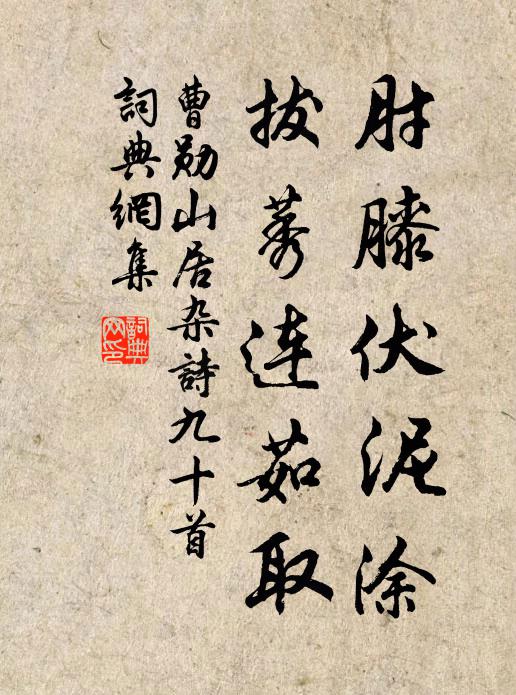 肘膝伏泥涂
拔莠连茹取
曹勋山居杂詩九十首
詞典網集
詞典網印